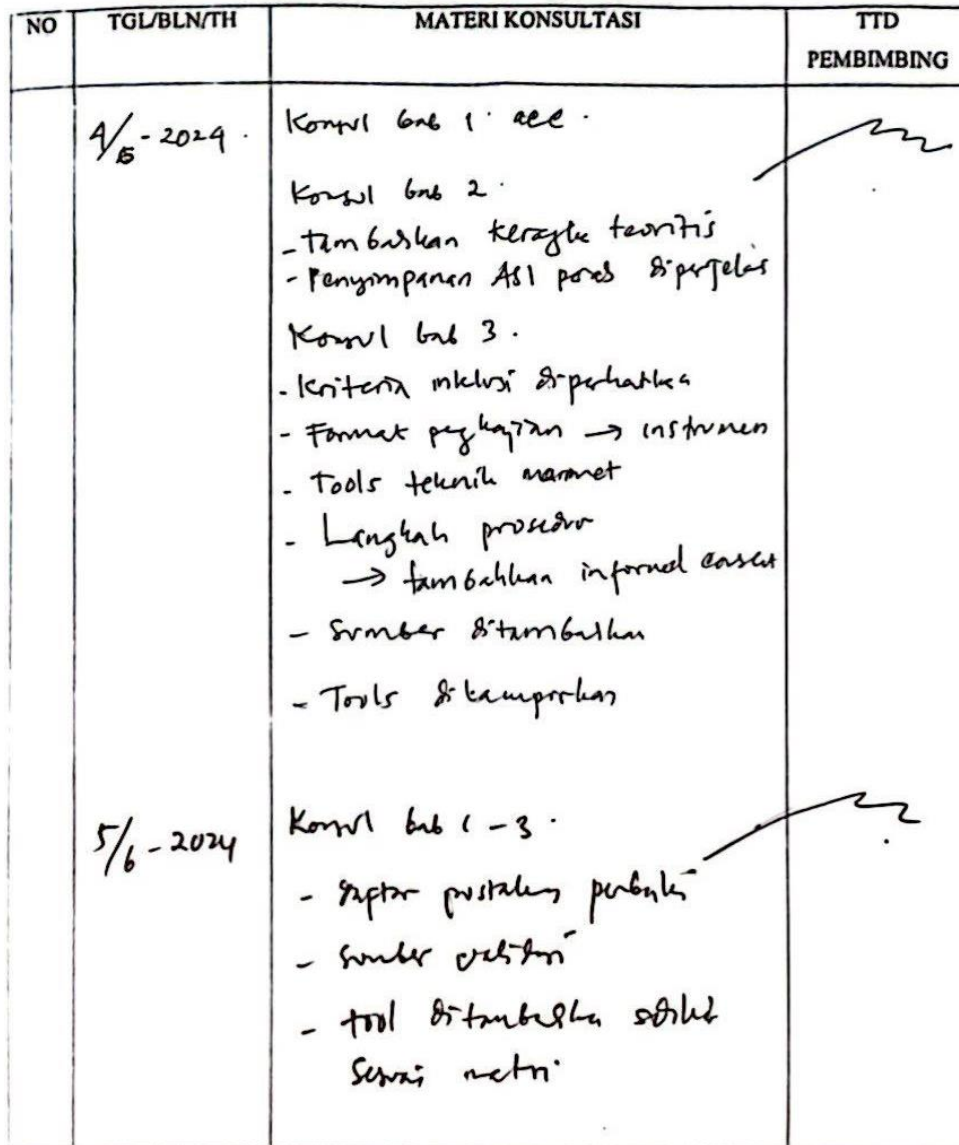 NO TGL/BLN/TH MATERI KONSULTASI TTD
PEMBIMBING
4/5 - 2024 . Konsul bab 1 . acc .
Konsul bab 2 .
- tambahkan kerangka teoritis
- Penyimpanan ASI perah diperjelas
Konsul bab 3 .
- Kriteria inklusi diperhatikan
- Format pengkajian → instrumen
- Tools teknik marmet
- Langkah prosedur
→ tambahkan informed consent
- Sumber ditambahkan
- Tools dilampirkan
5/6 - 2024 Konsul bab 1 - 3 .
- daftar pustaka perbaiki
- Sumber validasi
- tool ditambahkan sedikit
Sesuai materi